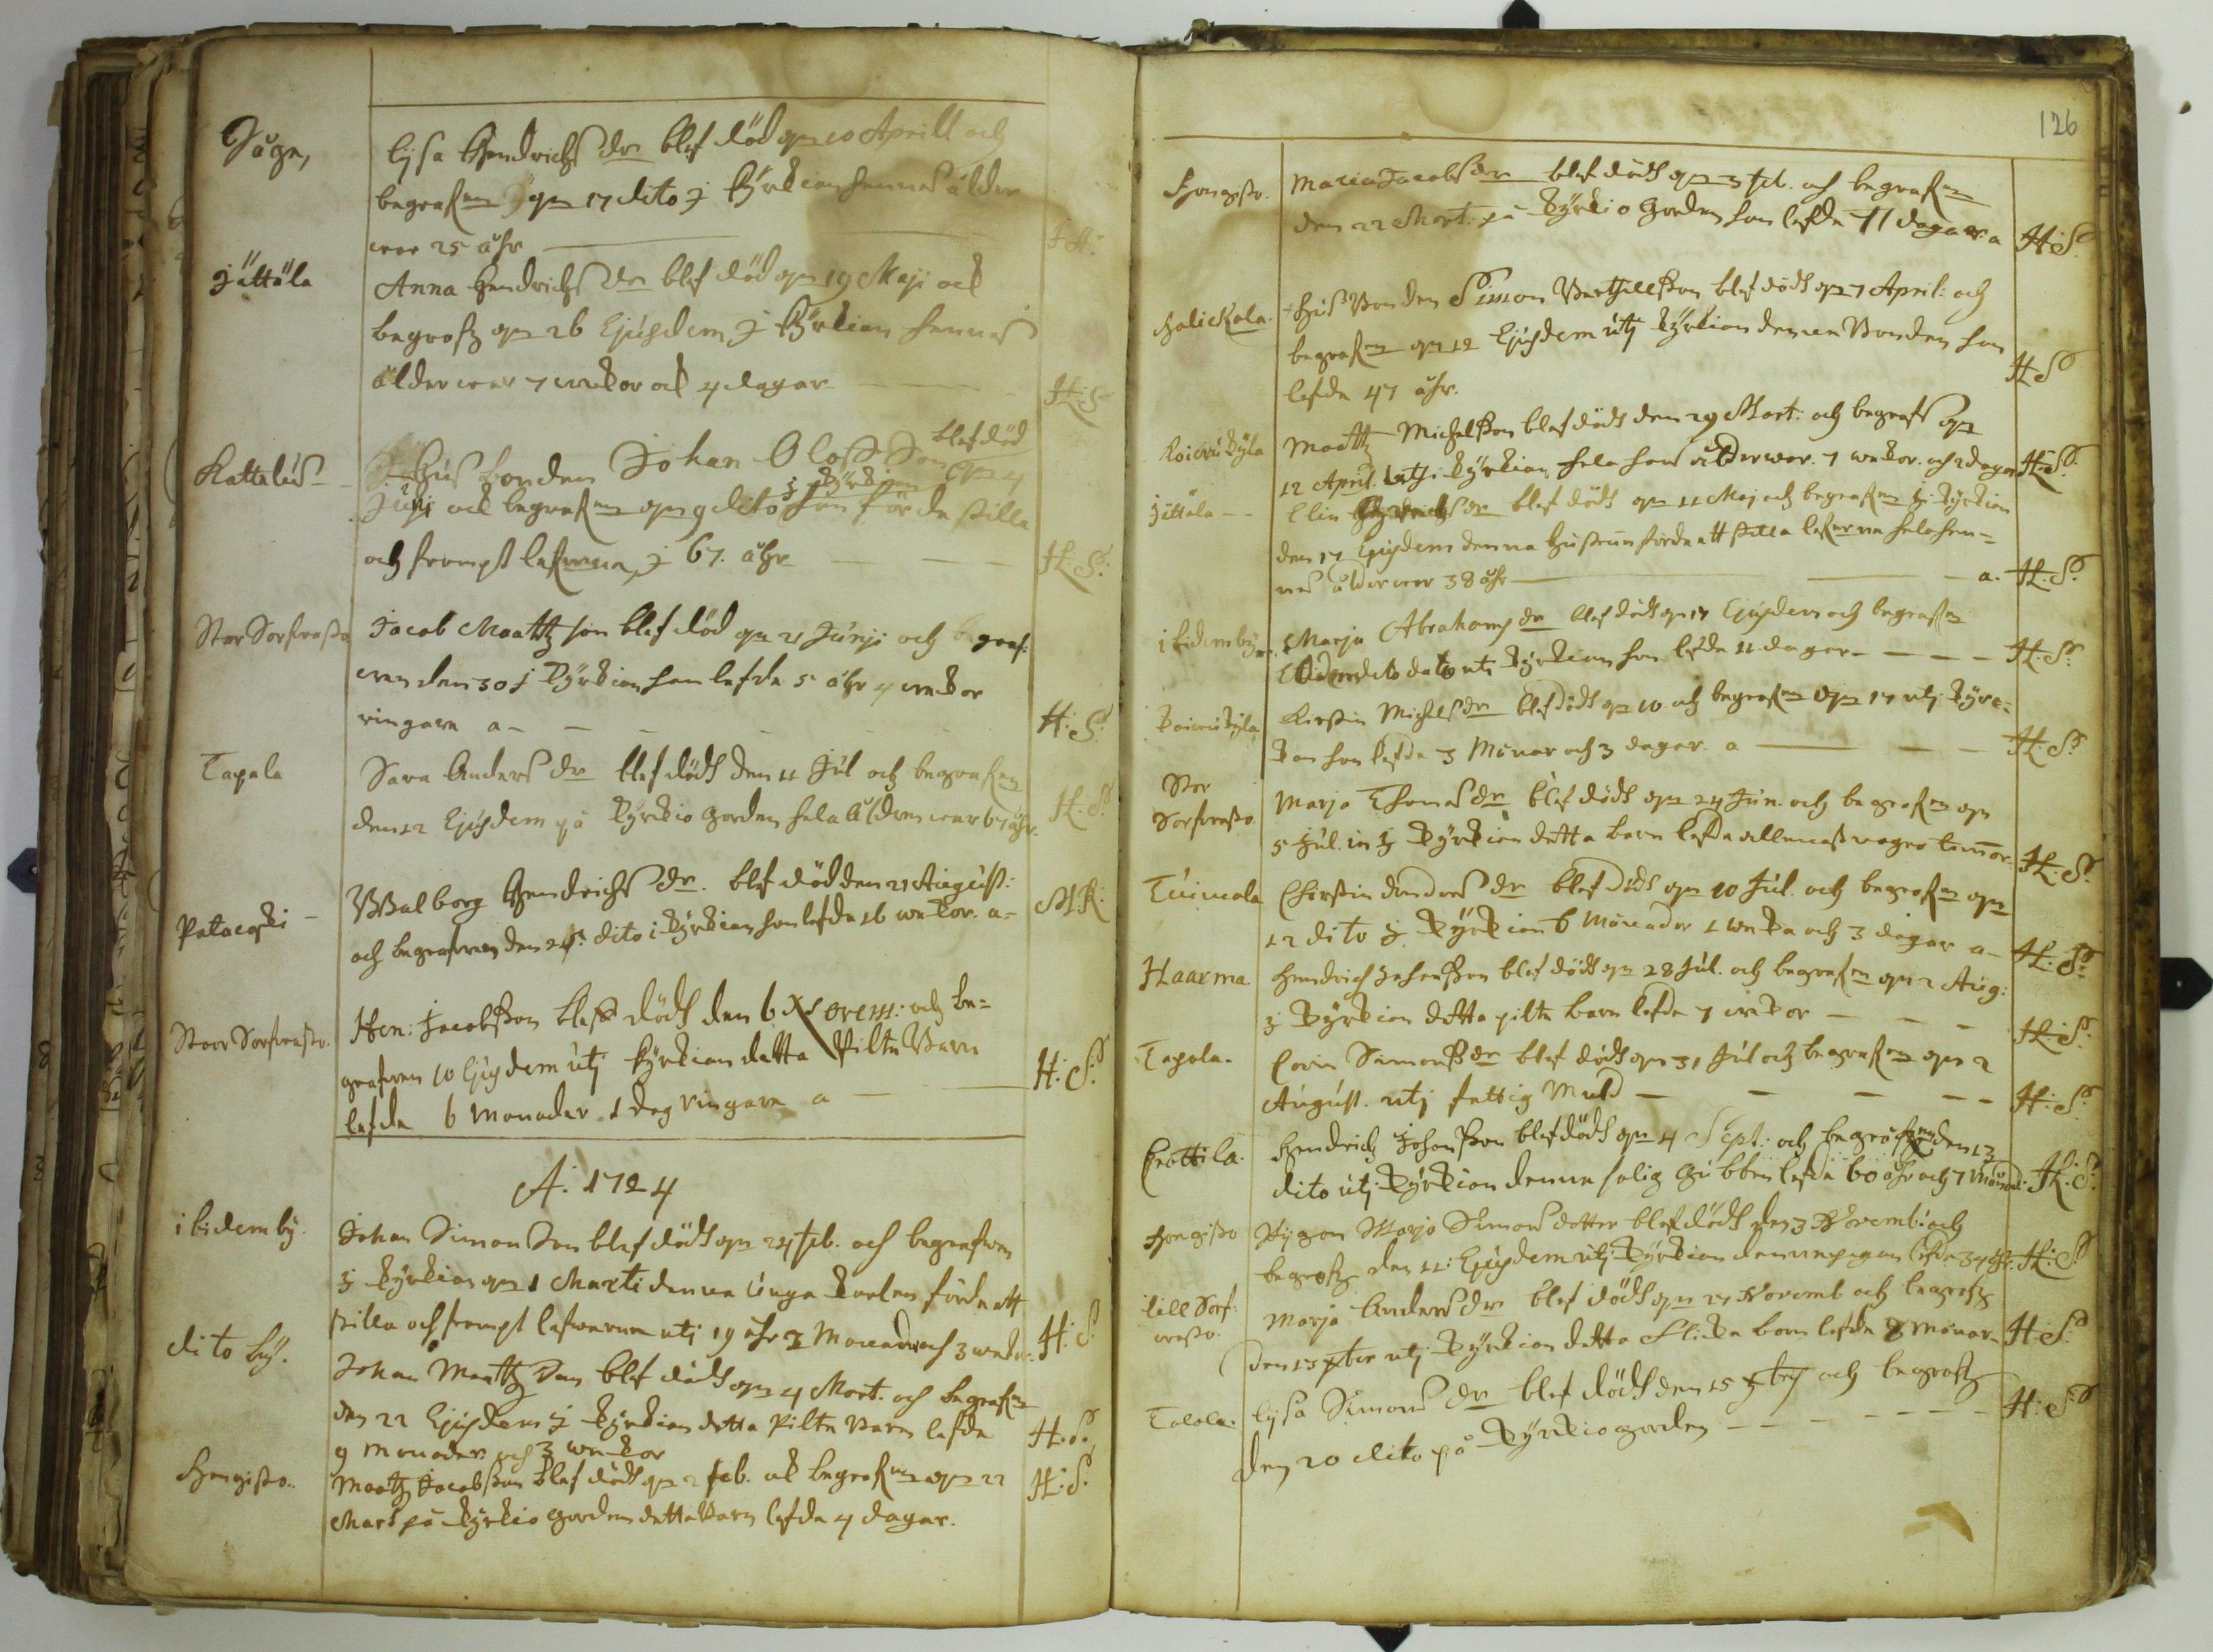 lijsa Hendrichs dr blef död den 10 Aprill och
begrafen den 17 dito j kÿrkian hennes ålder
war 25 åhr
Jättäla
Anna Hendrichs dr blef död den 19 Maji och
begrofz den 26 Ejusdem j kÿrkian hennes
ålder war 7 wekor och 4 dagar H:S
Kattelus
Husbonden Johan Oloffs Son blef död den 4
Junj och begrafen den 9 dito j kÿrkian han förde stilla
och fromt lefwerne j 67. åhr H:S:
Stor Sorfwasto
Jacob Matttz son blef död den 21 Junji och begraf:
wen den 30 j kÿrkian han lefde 5 åhr 4 wekor
ringare a- H:S:
Tapala
Sara Anders dr blef dödh den 11 Jul och begrafen
den 12 Ejusdem på kÿrkio gorden hela ålderen war 67 åhr. H:S:
Walborg Hendrichs dr. blef död den 21 August: M.K:
och begrafwen den 24 dito i kÿrkian hon lefde 16 wekor. a-
Stoor Sorfwasto.
Hen: Jacobsson blef dödh den 6 Novem: och be=
grafwen 10 Ejusdem utj kÿrkian detta Pilte Barn H:S:
lefde 6 Monader 1 dag ringare a
A. 1724
ibidem bÿ.
Johan Simon Son blef dödh den 24 feb. och begrafwen
j kÿrkian den 1 Marti denne unga karlen förde ett
stilla och fromt lefwerne utj 19 åhr 3 Monader och 3 wekor. H:S:
dito bÿ.
Johan Mattz Son blef dödh den 4 Mart. och begrafen
den 22 Ejusdem j kÿrkian detta Pilte barn lefde
9 monader och 3 wekor H:S:
Hongisto.
Mattz Jacobsson blef dödh den 2 feb. och begrafen den 22 H:S:
Mart på kÿrkio gorden detta barn lefde 4 dagar.
126
Hongisto.
Maria Jacobs dr blef dödh den 3 feb. och begrafen
den 22 Mart: på kÿrkio gorden hon lefde 11 dagar a H:S:
Halickala.
Husbonden Simon Berthillsson blef dödh den 7 April: och
begrafen den 12 Ejusdem utj kÿrkian denne Bonden han
lefde 47 åhr. H:S
Mattz Michelsson blef dödh den 29 Mart: och begrafs den
12 April. utj kÿrkian hela hans ålder war. 7 wekor. och 2 dagar H:S:
Jättäla
Elin dr blef dödh den 11 Maj och begrafen j kÿrkian
den 17 Ejusdem denna hustrun förde ett stilla lefwerne hela hen=
nes ålder war 38 åhr a. H:S:
ibidem bÿ
Marja Abrahams dr blef dödh den 17 Ejusdem och begrafen
dito dato utj kÿrkian hon lefde 11 dagar H:S:
Kirstin Michels dr blef dödh den 10 och begrafen den 17 utj kÿr=
kian hon lefde 3 Monar och 3 dagar a H:S:
Stor
Sorfwasto
Marja Thomas dr blef dödh den 24 Jun. och begrafen den
5 Jul. in j kÿrkian detta barn lefde allenast nogra timor. H:S:
Tuimala
Christin Anders dr blef dödh den 10 Jul. och begrafen den
12 dito j kÿrkian 6 Monader 1 weka och 3 dagar a- H:S:
Haarma
Hendrich Johansson blef dödh den 28 Jul. och begrafen den 2 Aug:
j kÿrkian detta pilte barn lefde 7 wekor H:S:
Tapola.
Carin Simons dr blef dödh den 31 Jul och begrafen den 2
August. utj fattig Muld H:S:
Hendrich Johansson blef dödh den 4 Sept: och begrofz den 13
dito utj kÿrkian denne salig Gubben lefde 60 åhr och 7 Monad: H:S:
Hongisto
Pigan Marja Simons dotter blef dödh den 3 Novemb: och
begrofz den 11: Ejusdem utj kÿrkian denne pigan lefde 34 åhr. H:S
lill Sorf=
wasto.
Marja Anders dr blef dödh den 27 Novemb och begrofz
den xbr utj kÿrkian detta flicka barn lefde 8 Monar H:S:
Talala.
lijsa Simons dr blef dödh den 15 xbr och begrofz
den 20 dito på kÿrkiogorden H:S: